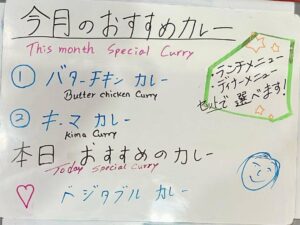 今月のおすすめカレー
This month Special Curry
① バターチキン カレー
Butter chicken Curry
② キーマ カレー
kima Curry
本日 おすすめのカレー
Today special curry
ベジタブル カレー
・ランチメニュー
・ディナーメニュー
セットで選べます!